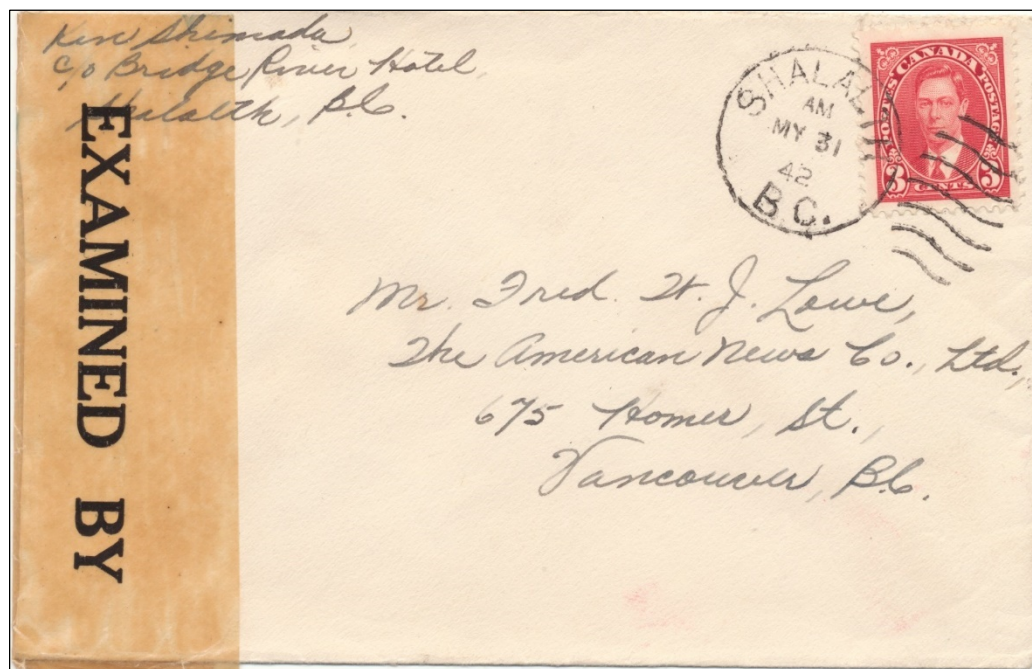 Ken Shimada
c/o Bridge River Hotel,
Shalalth, B.C.
EXAMINED BY
SHALALTH
AM
MY 31
42
B.C.
CANADA
POSTES POSTAGE
3 CENTS 3
Mr. Fred. W. J. Lowe,
The American News Co., Ltd.,
675 Homer St.,
Vancouver, B.C.